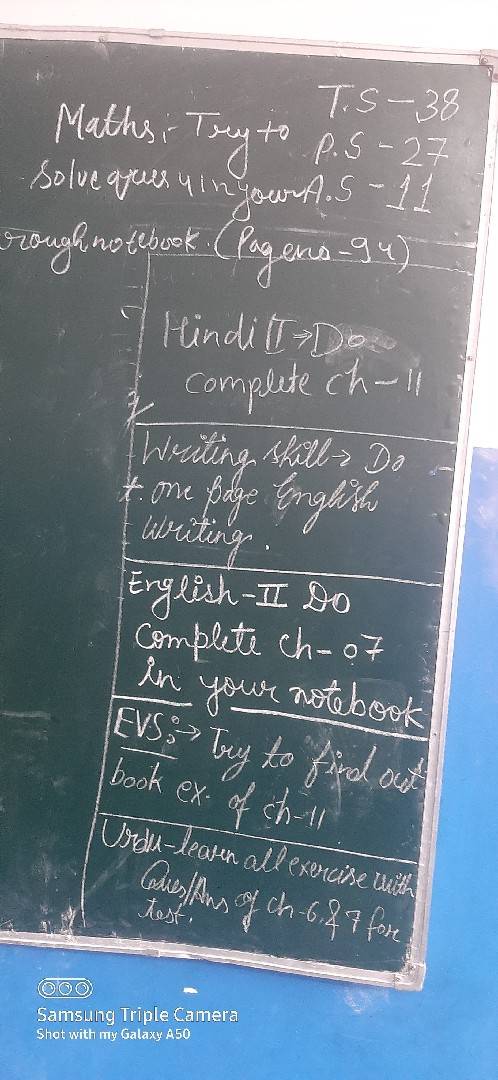 T.S - 38
P.S - 27
A.S - 11
Maths:- Try to
Solve ques 4 in your
rough notebook. (Page no - 94)
Hindi II → Do
complete ch - 11
Writing skill → Do
one page English
Writing.
English - II Do
Complete ch - 07
in your notebook
EVS:→ Try to find out
book ex. of ch-11
Urdu - learn all exercise with
Ques/Ans of ch-6 & 7 for
test.
Samsung Triple Camera
Shot with my Galaxy A50